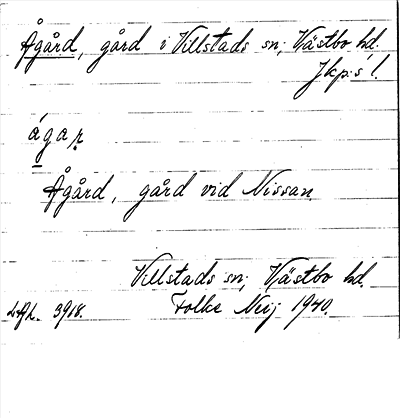 Ågård, gård i Villstads sn; Västbo hd.
Jkp:s l.
ágar
Ågård, gård vid Nissan.
Villstads sn; Västbo hd.
Folke Neij 1940.
3918.